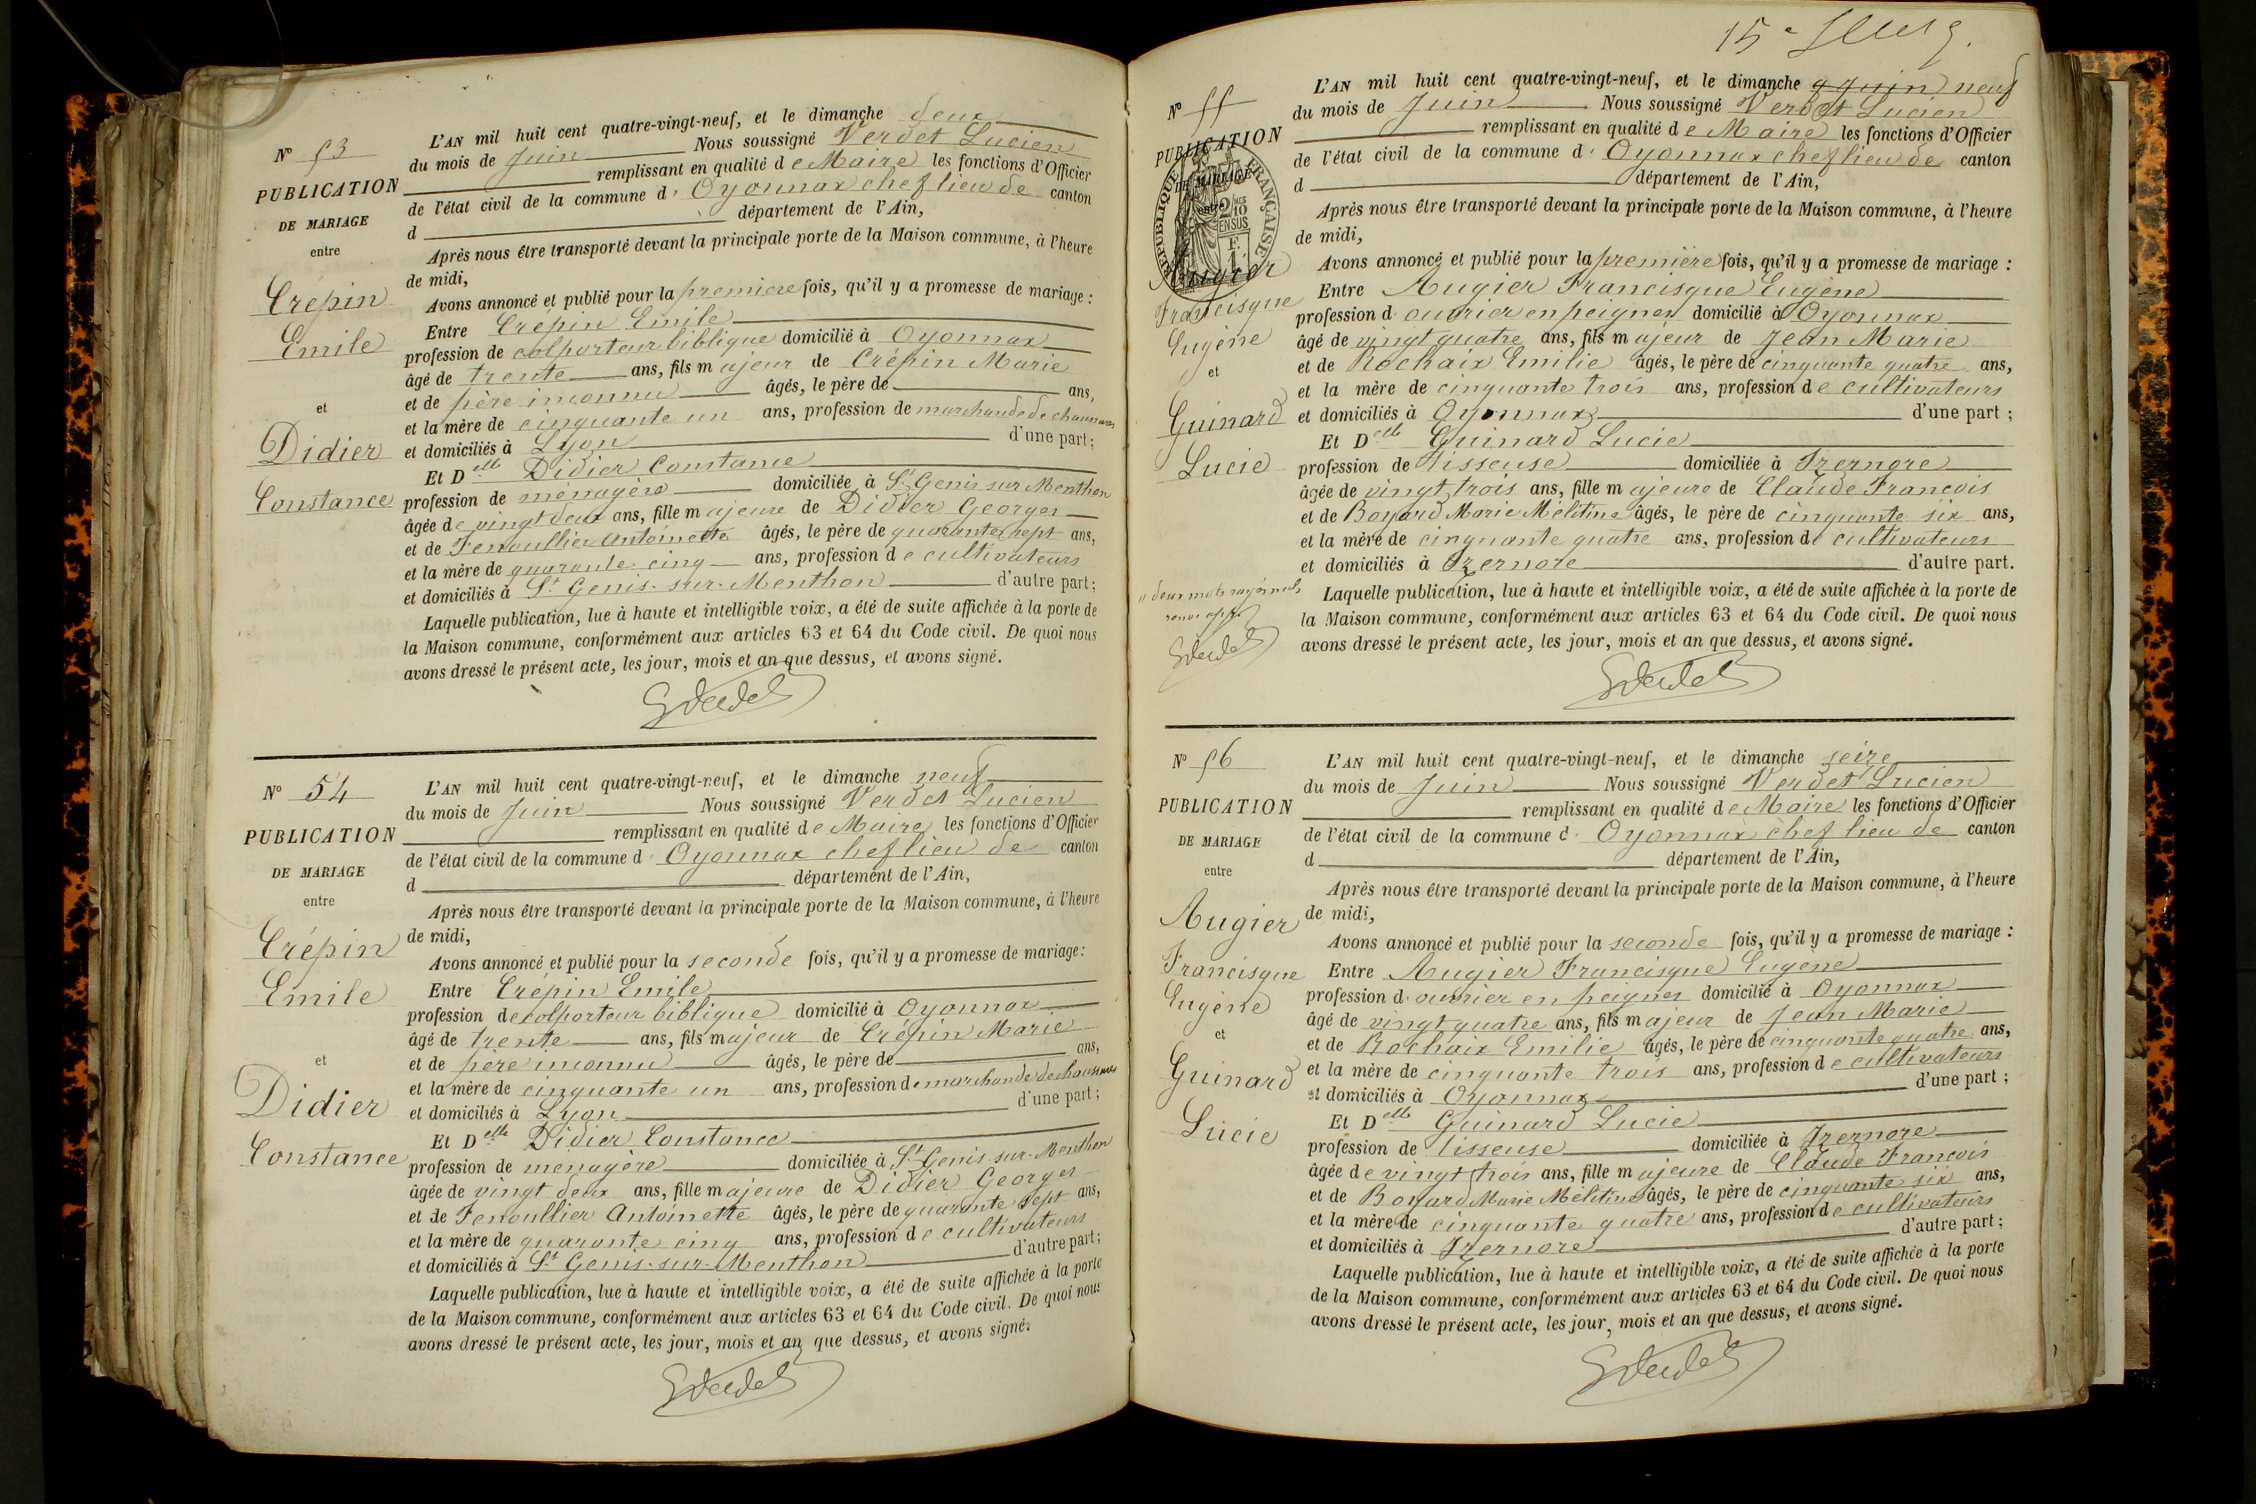 N° 53
PUBLICATION
DE MARIAGE
entre
Crépin
Emile
et
Didier
Constance
L'AN mil huit cent quatre-vingt-neuf, et le dimanche deux
du mois de Juin Nous soussigné Verdet Lucien
remplissant en qualité de Maire les fonctions d'Officier
de l'état civil de la commune d' Oyonnax chef lieu de canton
d département de l'Ain,
Après nous être transporté devant la principale porte de la Maison commune, à l'heure
de midi,
Avons annoncé et publié pour la première fois, qu'il y a promesse de mariage :
Entre Crépin Emile
profession de colporteur biblique domicilié à Oyonnax
âgé de trente ans, fils majeur de Crépin Marie
et de père inconnu âgés, le père de ans,
et la mère de cinquante un ans, profession de marchande de chaussures
et domiciliés à Lyon d'une part ;
Et Delle Didier Constance
profession de ménagère domiciliée à St Genis sur Menthon
âgée de vingt deux ans, fille majeure de Didier Georges
et de Fenoullier Antoinette âgés, le père de quarante sept ans,
et la mère de quarante cinq ans, profession de cultivateurs
et domiciliés à St Genis-sur-Menthon d'autre part ;
Laquelle publication, lue à haute et intelligible voix, a été de suite affichée à la porte de
la Maison commune, conformément aux articles 63 et 64 du Code civil. De quoi nous
avons dressé le présent acte, les jour, mois et an que dessus, et avons signé.
N° 54
PUBLICATION
DE MARIAGE
entre
Crépin
Emile
et
Didier
Constance
L'AN mil huit cent quatre-vingt-neuf, et le dimanche neuf
du mois de Juin Nous soussigné Verdet Lucien
remplissant en qualité de Maire les fonctions d'Officier
de l'état civil de la commune d' Oyonnax chef lieu de canton
d département de l'Ain,
Après nous être transporté devant la principale porte de la Maison commune, à l'heure
de midi,
Avons annoncé et publié pour la seconde fois, qu'il y a promesse de mariage :
Entre Crépin Emile
profession de colporteur biblique domicilié à Oyonnax
âgé de trente ans, fils majeur de Crépin Marie
et de père inconnu âgés, le père de ans,
et la mère de cinquante un ans, profession de marchande de chaussures
et domiciliés à Lyon d'une part ;
Et Delle Didier Constance
profession de ménagère domiciliée à St Genis-sur-Menthon
âgée de vingt deux ans, fille majeure de Didier Georges
et de Fenoullier Antoinette âgés, le père de quarante sept ans,
et la mère de quarante cinq ans, profession de cultivateurs
et domiciliés à St Genis-sur-Menthon d'autre part ;
Laquelle publication, lue à haute et intelligible voix, a été de suite affichée à la porte
de la Maison commune, conformément aux articles 63 et 64 du Code civil. De quoi nous
avons dressé le présent acte, les jour, mois et an que dessus, et avons signé.
15e
N° 55
PUBLICATION
DE MARIAGE
entre
RÉPUBLIQUE FRANÇAISE
2/10 EN SUS
Augier
Francisque
Eugène
et
Guinard
Lucie
L'AN mil huit cent quatre-vingt-neuf, et le dimanche 9 juin neuf
du mois de Juin Nous soussigné Verdet Lucien
remplissant en qualité de Maire les fonctions d'Officier
de l'état civil de la commune d' Oyonnax chef lieu de canton
d département de l'Ain,
Après nous être transporté devant la principale porte de la Maison commune, à l'heure
de midi,
Avons annoncé et publié pour la première fois, qu'il y a promesse de mariage :
Entre Augier Francisque Eugène
profession d' ouvrier en peignes domicilié à Oyonnax
âgé de vingt quatre ans, fils majeur de Jean Marie
et de Rochaix Emilie âgés, le père de cinquante quatre ans,
et la mère de cinquante trois ans, profession de cultivateurs
et domiciliés à Oyonnax d'une part ;
Et Delle Guinard Lucie
profession de tisseuse domiciliée à Izernore
âgée de vingt trois ans, fille majeure de Claude François
et de Boyard Marie Mélitine âgés, le père de cinquante six ans,
et la mère de cinquante quatre ans, profession de cultivateurs
et domiciliés à Izernore d'autre part.
deux mots rayés nuls
Laquelle publication, lue à haute et intelligible voix, a été de suite affichée à la porte de
la Maison commune, conformément aux articles 63 et 64 du Code civil. De quoi nous
avons dressé le présent acte, les jour, mois et an que dessus, et avons signé.
N° 56
PUBLICATION
DE MARIAGE
entre
Augier
Francisque
Eugène
et
Guinard
Lucie
L'AN mil huit cent quatre-vingt-neuf, et le dimanche seize
du mois de Juin Nous soussigné Verdet Lucien
remplissant en qualité de Maire les fonctions d'Officier
de l'état civil de la commune d' Oyonnax chef lieu de canton
d département de l'Ain,
Après nous être transporté devant la principale porte de la Maison commune, à l'heure
de midi,
Avons annoncé et publié pour la seconde fois, qu'il y a promesse de mariage :
Entre Augier Francisque Eugène
profession d' ouvrier en peignes domicilié à Oyonnax
âgé de vingt quatre ans, fils majeur de Jean Marie
et de Rochaix Emilie âgés, le père de cinquante quatre ans,
et la mère de cinquante trois ans, profession de cultivateurs
et domiciliés à Oyonnax d'une part ;
Et Delle Guinard Lucie
profession de tisseuse domiciliée à Izernore
âgée de vingt trois ans, fille majeure de Claude François
et de Boyard Marie Mélitine âgés, le père de cinquante six ans,
et la mère de cinquante quatre ans, profession de cultivateurs
et domiciliés à Izernore d'autre part ;
Laquelle publication, lue à haute et intelligible voix, a été de suite affichée à la porte
de la Maison commune, conformément aux articles 63 et 64 du Code civil. De quoi nous
avons dressé le présent acte, les jour, mois et an que dessus, et avons signé.